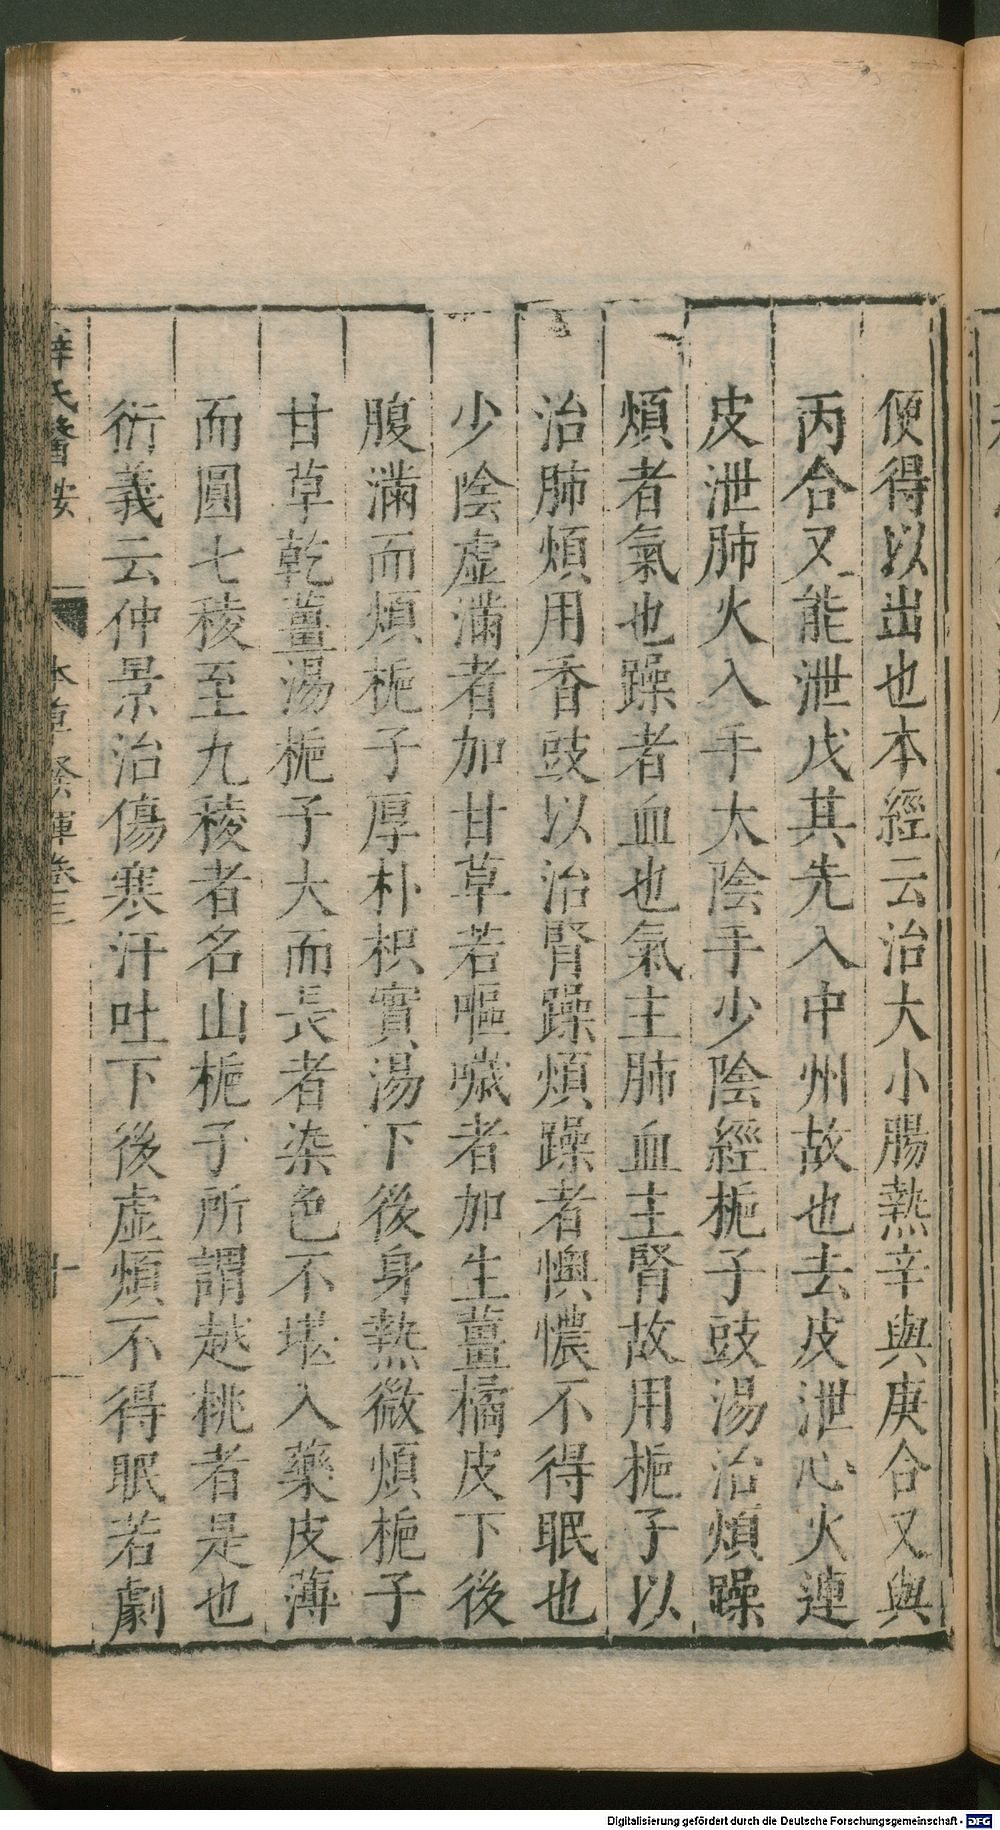 便得以出也本經云治大小腸熱辛與庚合又與
丙合又能泄戊其先入中州故也去皮泄心火連
皮泄肺火入手太陰手少陰經梔子豉湯治煩躁
煩者氣也躁者血也氣主肺血主腎故用梔子以
治肺煩用香豉以治腎躁煩躁者懊憹不得眠也
少陰虛滿者加甘草若嘔噦者加生薑橘皮下後
腹滿而煩梔子厚朴枳實湯下後身熱微煩梔子
甘草乾薑湯梔子大而長者染色不堪入藥皮薄
而圓七稜至九稜者名山梔子所謂越桃者是也
衍義云仲景治傷寒汗吐下後虛煩不得眠若劇
薛氏醫按 本草發揮卷三 十
Digitalisierung gefördert durch die Deutsche Forschungsgemeinschaft - DFG